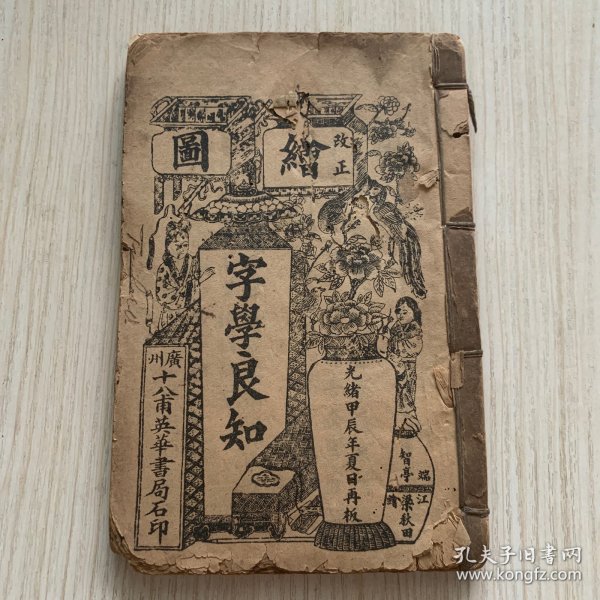 改正
繪圖
字學良知
光緒甲辰年夏日再板
端江
智亭梁秋田繪
廣州十八甫英華書局石印
孔夫子旧书网
www.kongfz.com